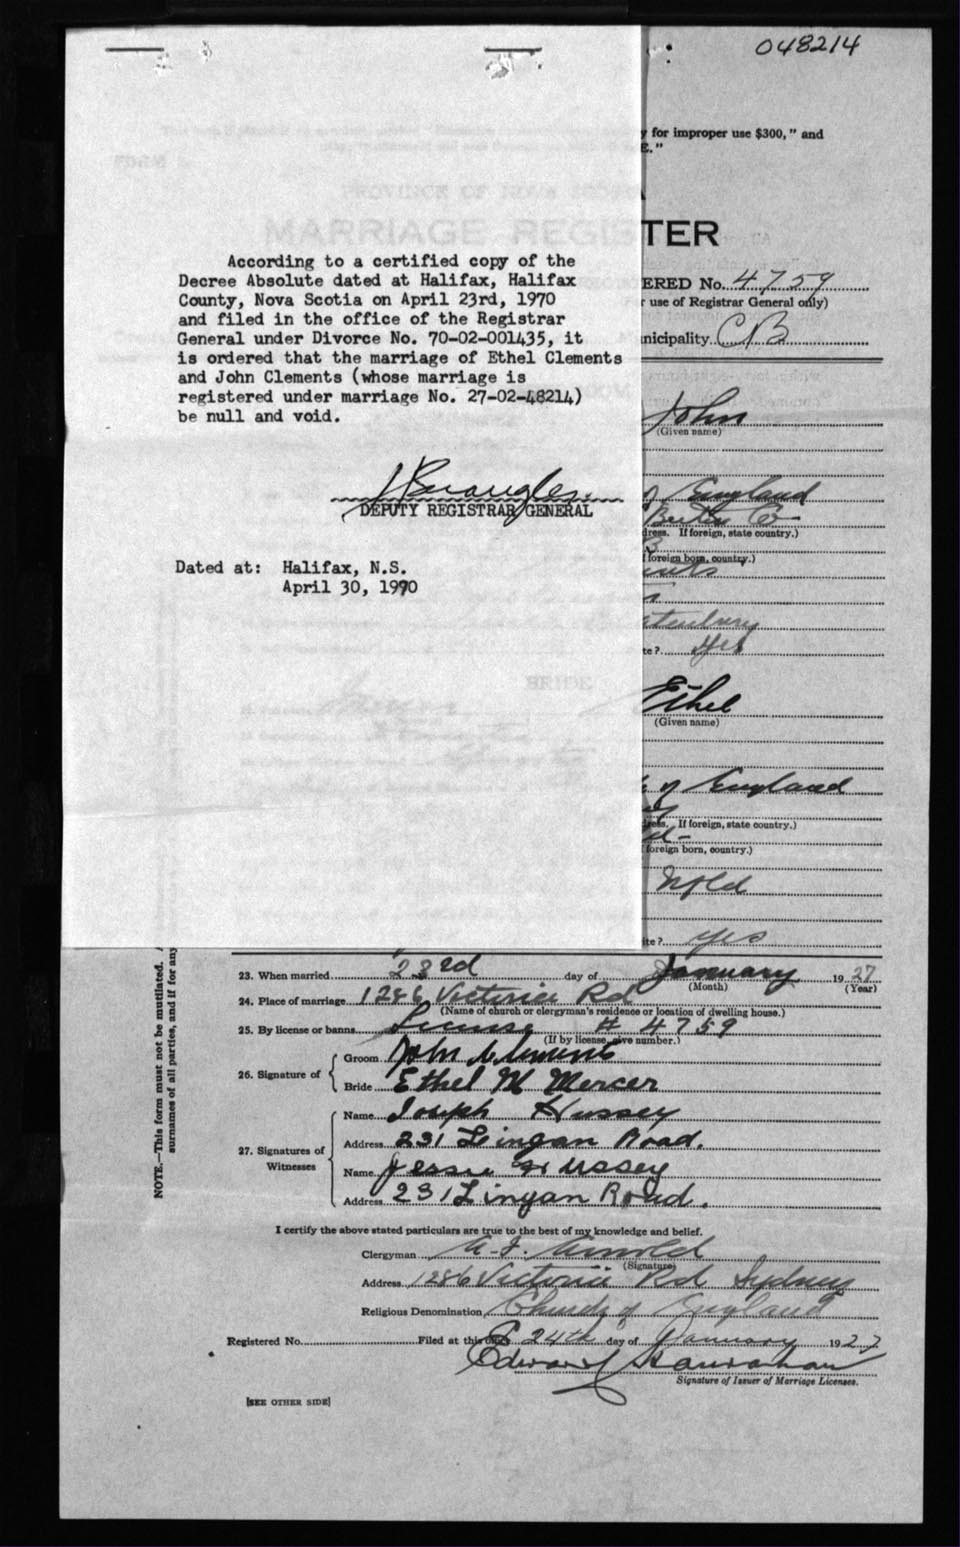 048214
y for improper use $300," and
E."
According to a certified copy of the
Decree Absolute dated at Halifax, Halifax
County, Nova Scotia on April 23rd, 1970
and filed in the office of the Registrar
General under Divorce No. 70-02-001435, it
is ordered that the marriage of Ethel Clements
and John Clements (whose marriage is
registered under marriage No. 27-02-48214)
be null and void.
DEPUTY REGISTRAR GENERAL
Dated at: Halifax, N.S.
April 30, 1970
MARRIAGE REGISTER
ERED No. 4759
use of Registrar General only)
nicipality. CB
John
(Given name)
England
dress. If foreign, state country.)
foreign born, country.)
te? Yes
BRIDE
Ethel
(Given name)
of England
dress. If foreign, state country.)
foreign born, country.)
Nfld
ite? yes
NOTE.—This form must not be mutilated.
surnames of all parties, and if for any
23. When married 23rd day of January 1927
(Month) (Year)
24. Place of marriage 1286 Victoria Rd
(Name of church or clergyman's residence or location of dwelling house.)
25. By license or banns License # 4759
(If by license, give number.)
26. Signature of
Groom John Clements
Bride Ethel M Mercer
27. Signatures of Witnesses
Name Joseph Hussey
Address 231 Lingan Road.
Name Jessie Hussey
Address 231 Lingan Road.
I certify the above stated particulars are true to the best of my knowledge and belief.
Clergyman A. F. Arnold
(Signature)
Address 1286 Victoria Rd Sydney
Religious Denomination Church of England
Registered No. Filed at this office 24th day of January 1927
Edward
Signature of Issuer of Marriage Licenses.
[SEE OTHER SIDE]